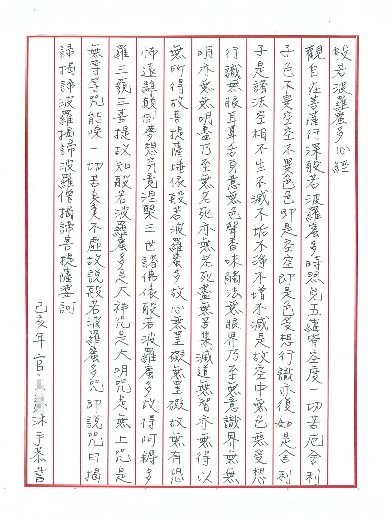 般若波羅蜜多心經
觀自在菩薩行深般若波羅蜜多時照見五蘊皆空度一切苦厄舍利
子色不異空空不異色色即是空空即是色受想行識亦復如是舍利
子是諸法空相不生不滅不垢不淨不增不減是故空中無色無受想
行識無眼耳鼻舌身意無色聲香味觸法無眼界乃至無意識界無無
明亦無無明盡乃至無老死亦無老死盡無苦集滅道無智亦無得以
無所得故菩提薩埵依般若波羅蜜多故心無罣礙無罣礙故無有恐
怖遠離顛倒夢想究竟涅槃三世諸佛依般若波羅蜜多故得阿耨多
羅三藐三菩提故知般若波羅蜜多是大神咒是大明咒是無上咒是
無等等咒能除一切苦真實不虛故說般若波羅蜜多咒即說咒曰揭
諦揭諦波羅揭諦波羅僧揭諦菩提薩婆訶
己亥年官沐手恭書